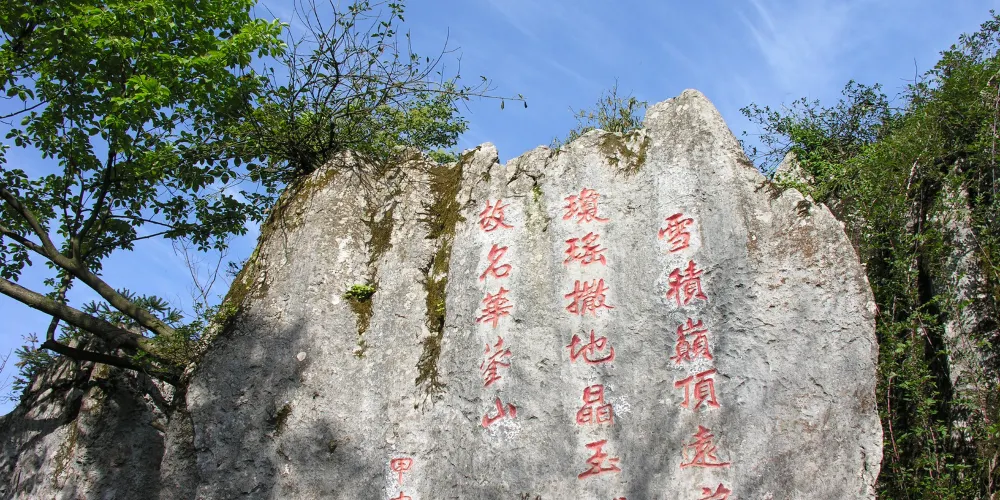 雪積巔頂遠
瓊瑤撒地晶玉
故名華蓥山
甲